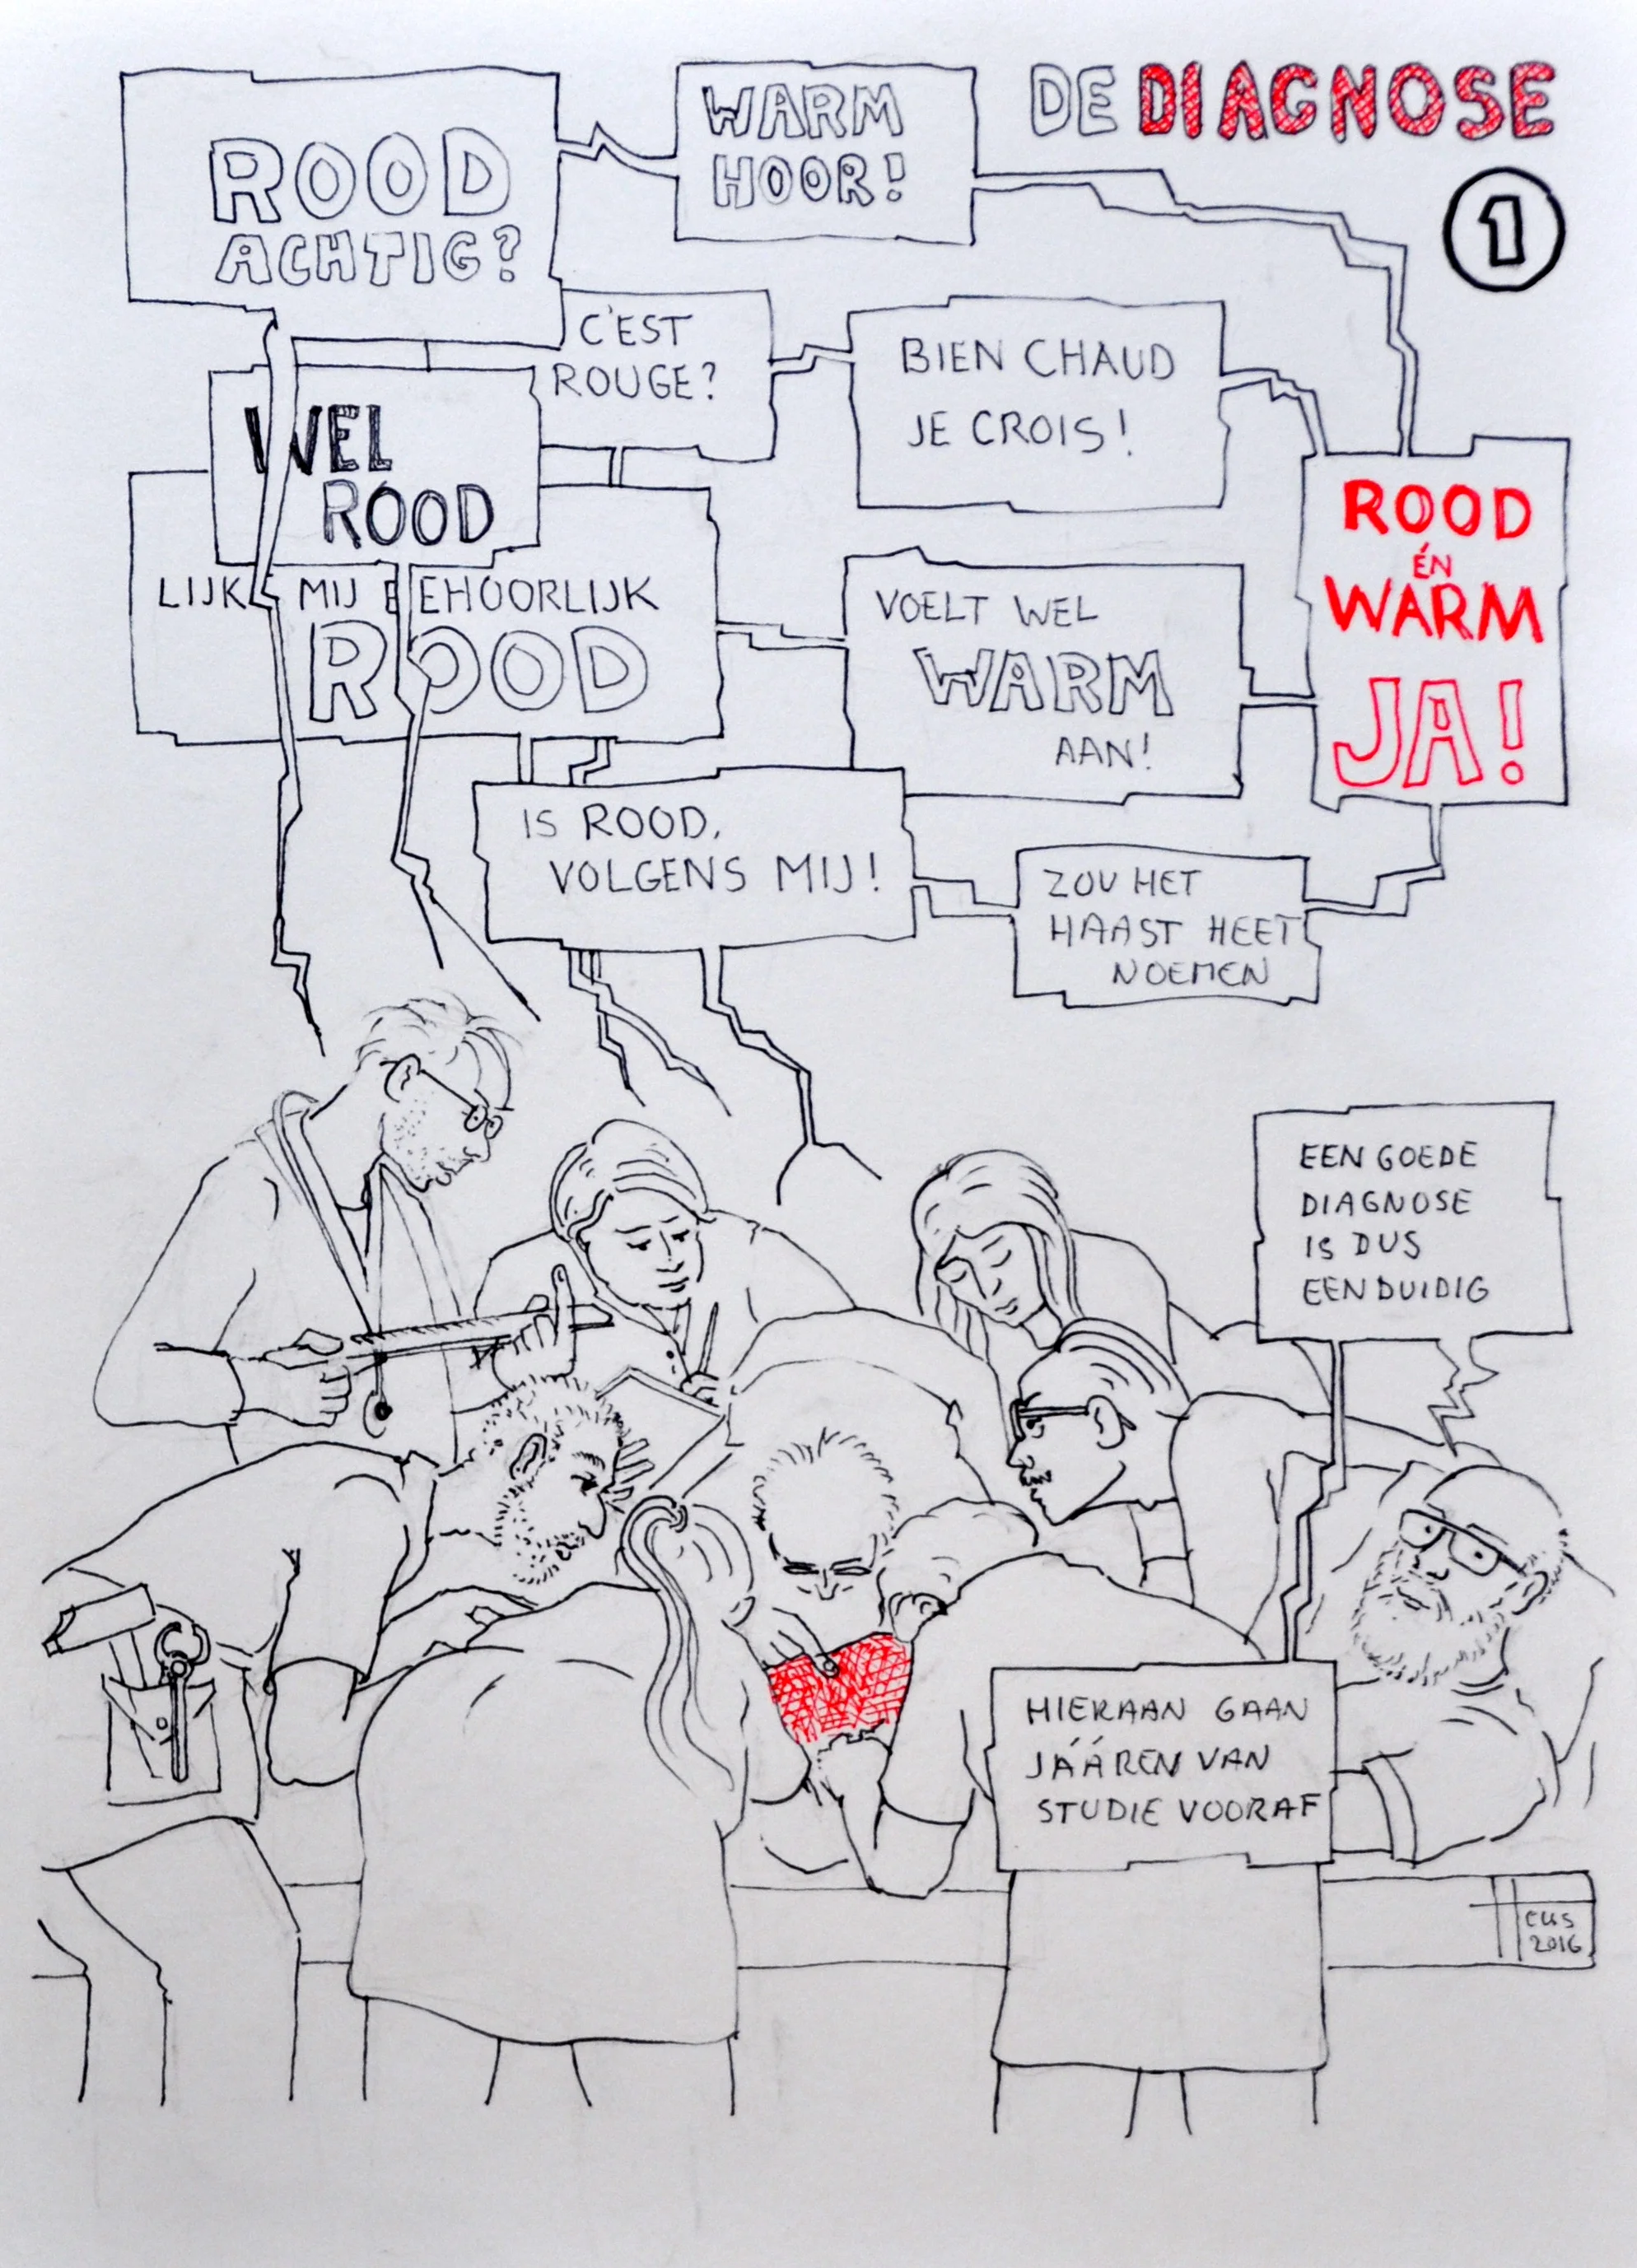 DE DIAGNOSE
1
ROOD
ACHTIG?
WARM
HOOR!
C'EST
ROUGE?
BIEN CHAUD
JE CROIS!
WEL
ROOD
LIJKT MIJ BEHOORLIJK
ROOD
VOELT WEL
WARM
AAN!
ROOD
ÉN
WARM
JA!
IS ROOD,
VOLGENS MIJ!
ZOU HET
HAAST HEET
NOEMEN
EEN GOEDE
DIAGNOSE
IS DUS
EENDUIDIG
HIERAAN GAAN
JÁÁREN VAN
STUDIE VOORAF
Heus
2016